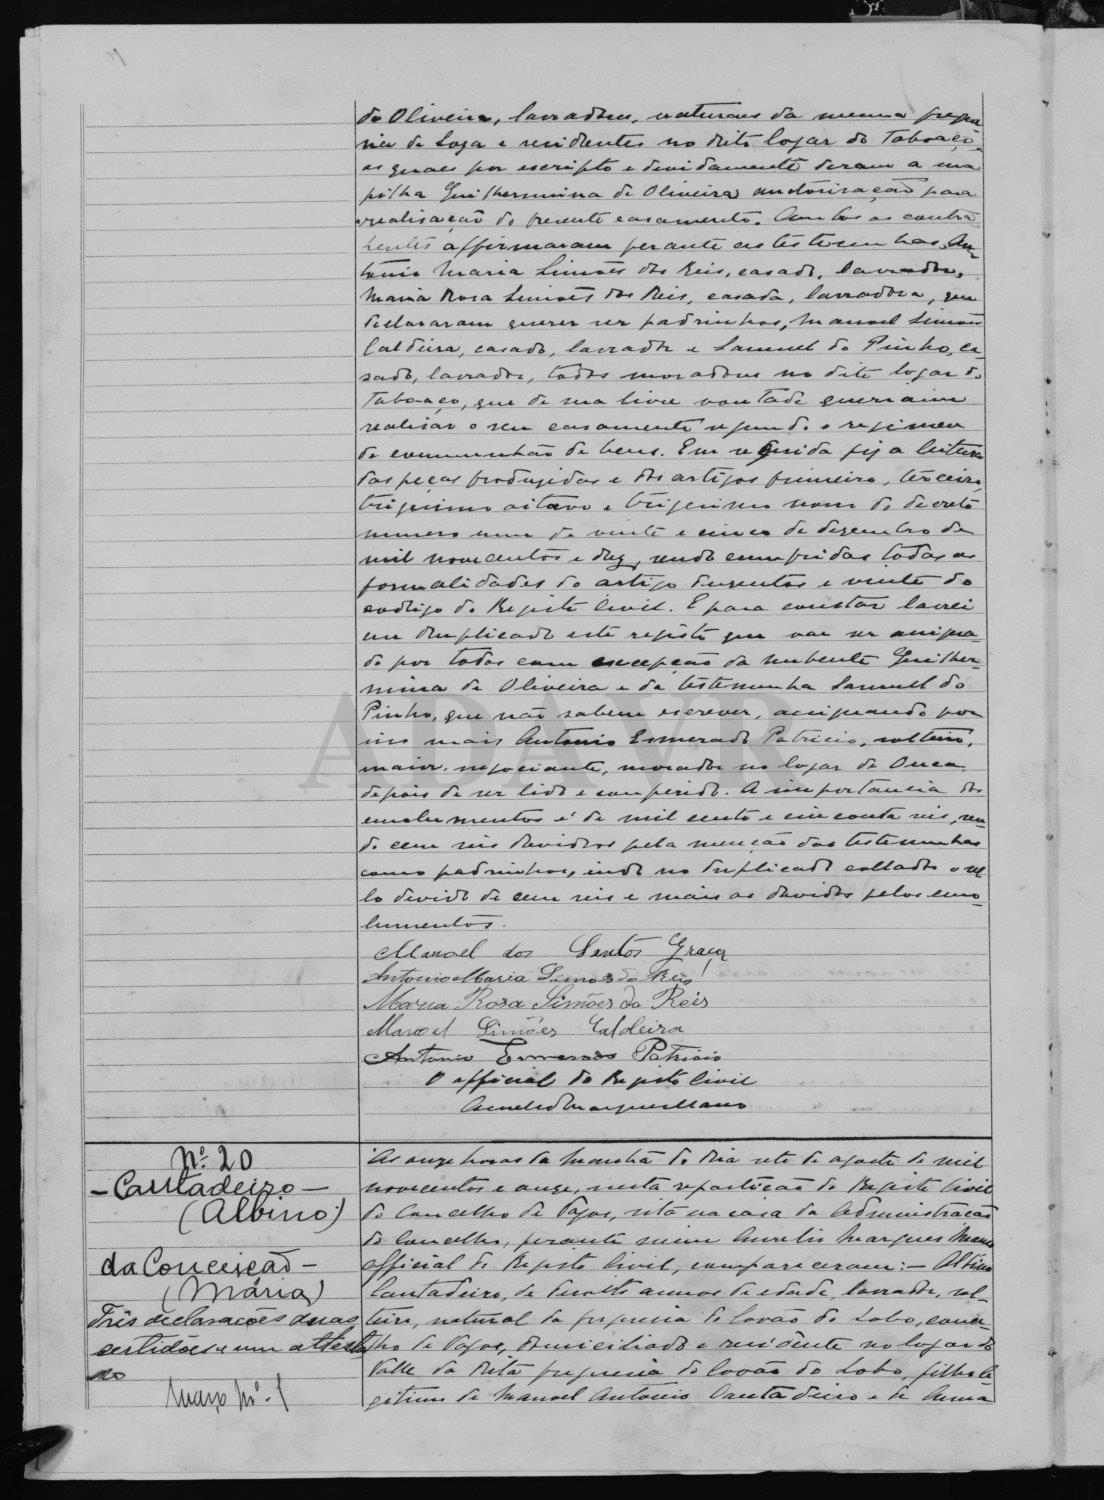 de Oliveira, lavradores, naturaes da mesma fregue
zia de Soza e residentes no dito logar do Taboaço
os quaes por escripto e devidamente deram a sua
filha Guilhermina de Oliveira auctorisação para
realisação do presente casamento. Ambos os contra
hentes affirmaram perante as testemunhas An
tonio Maria Simões dos Reis, casado, lavrador,
Maria Rosa Simões dos Reis, casada, lavradora, que
declararam querer ser padrinhos, Manoel Simões
Caldeira, casado, lavrador e Samuel do Pinho, ca-
sado, lavrador, todos moradores no dito logar do
Taboaço, que de sua livre vontade queriam
realisar o seu casamento segundo o regimen
de communhão de bens. Em seguida fiz a leitura
das peças produzidas e dos artigos primeiro, terceiro,
trigesimo oitavo e trigesimo nono do decreto
numero um de vinte e cinco de dezembro de
mil novecentos e dez, sendo cumpridas todas as
formalidades do artigo duzentos e vinte do
codigo do Registo Civil. E para constar lavrei
em duplicado este registo que vae ser assigna-
do por todos com excepção da nubente Guilher-
mina de Oliveira e da testemunha Samuel do
Pinho, que não sabem escrever, assignando por
isso mais Antonio Esmerado Patricio, solteiro,
maior, negociante, morador no logar de Ouca,
depois de ser lido e conferido. A importancia dos
emolumentos é de mil cento e cincoenta reis, sen-
do cem reis devidos pela menção das testemunhas
como padrinhos, indo no duplicado collado o sel-
lo devido de cem reis e mais os devidos pelos emo-
lumentos.
Manoel dos Santos Graça
Antonio Maria Simões do Reis
Maria Rosa Simões do Reis
Manoel Simões Caldeira
Antonio Esmerado Patricio
O official do Registo Civil
Aurelio Marques Mano
Nº 20
- Cantadeiro -
(Albino)
da Conceição -
(Maria)
Três declarações duas
certidões e um attesta
do
Maço Nº 1
As onze horas da manhã do dia sete de agosto de mil
novecentos e onze, nesta repartição do Registo Civil
do Concelho de Vagos, sita na casa da Administração
do Concelho, perante mim Aurelio Marques Mano
official do Registo Civil, compareceram: - Albino
Cantadeiro, de dezoito annos de edade, lavrador, sol-
teiro, natural da freguesia de Covão do Lobo, conce-
lho de Vagos, domiciliado e residente no logar do
Valle da dita freguesia do Covão do Lobo, filho le-
gitimo de Manoel Antonio Cantadeiro e de Anna
ADAVR